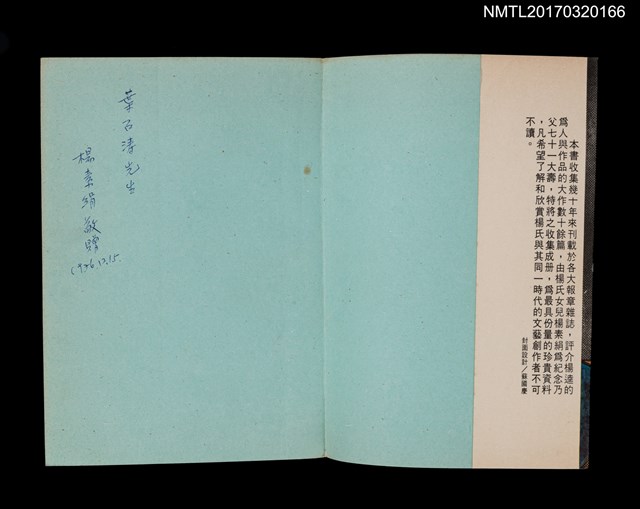 NMTL20170320166
本書收集幾十年來刊載於各大報章雜誌，評介楊逵的
爲人與作品的大作數十餘篇，由楊氏女兒楊素絹爲紀念乃
父七十一大壽，特將之收集成册，爲最具份量的珍貴資料
，凡希望了解和欣賞楊氏與其同一時代的文藝創作者不可
不讀。
封面設計／蘇國慶
葉石濤先生
楊素絹敬贈
1976.12.15.